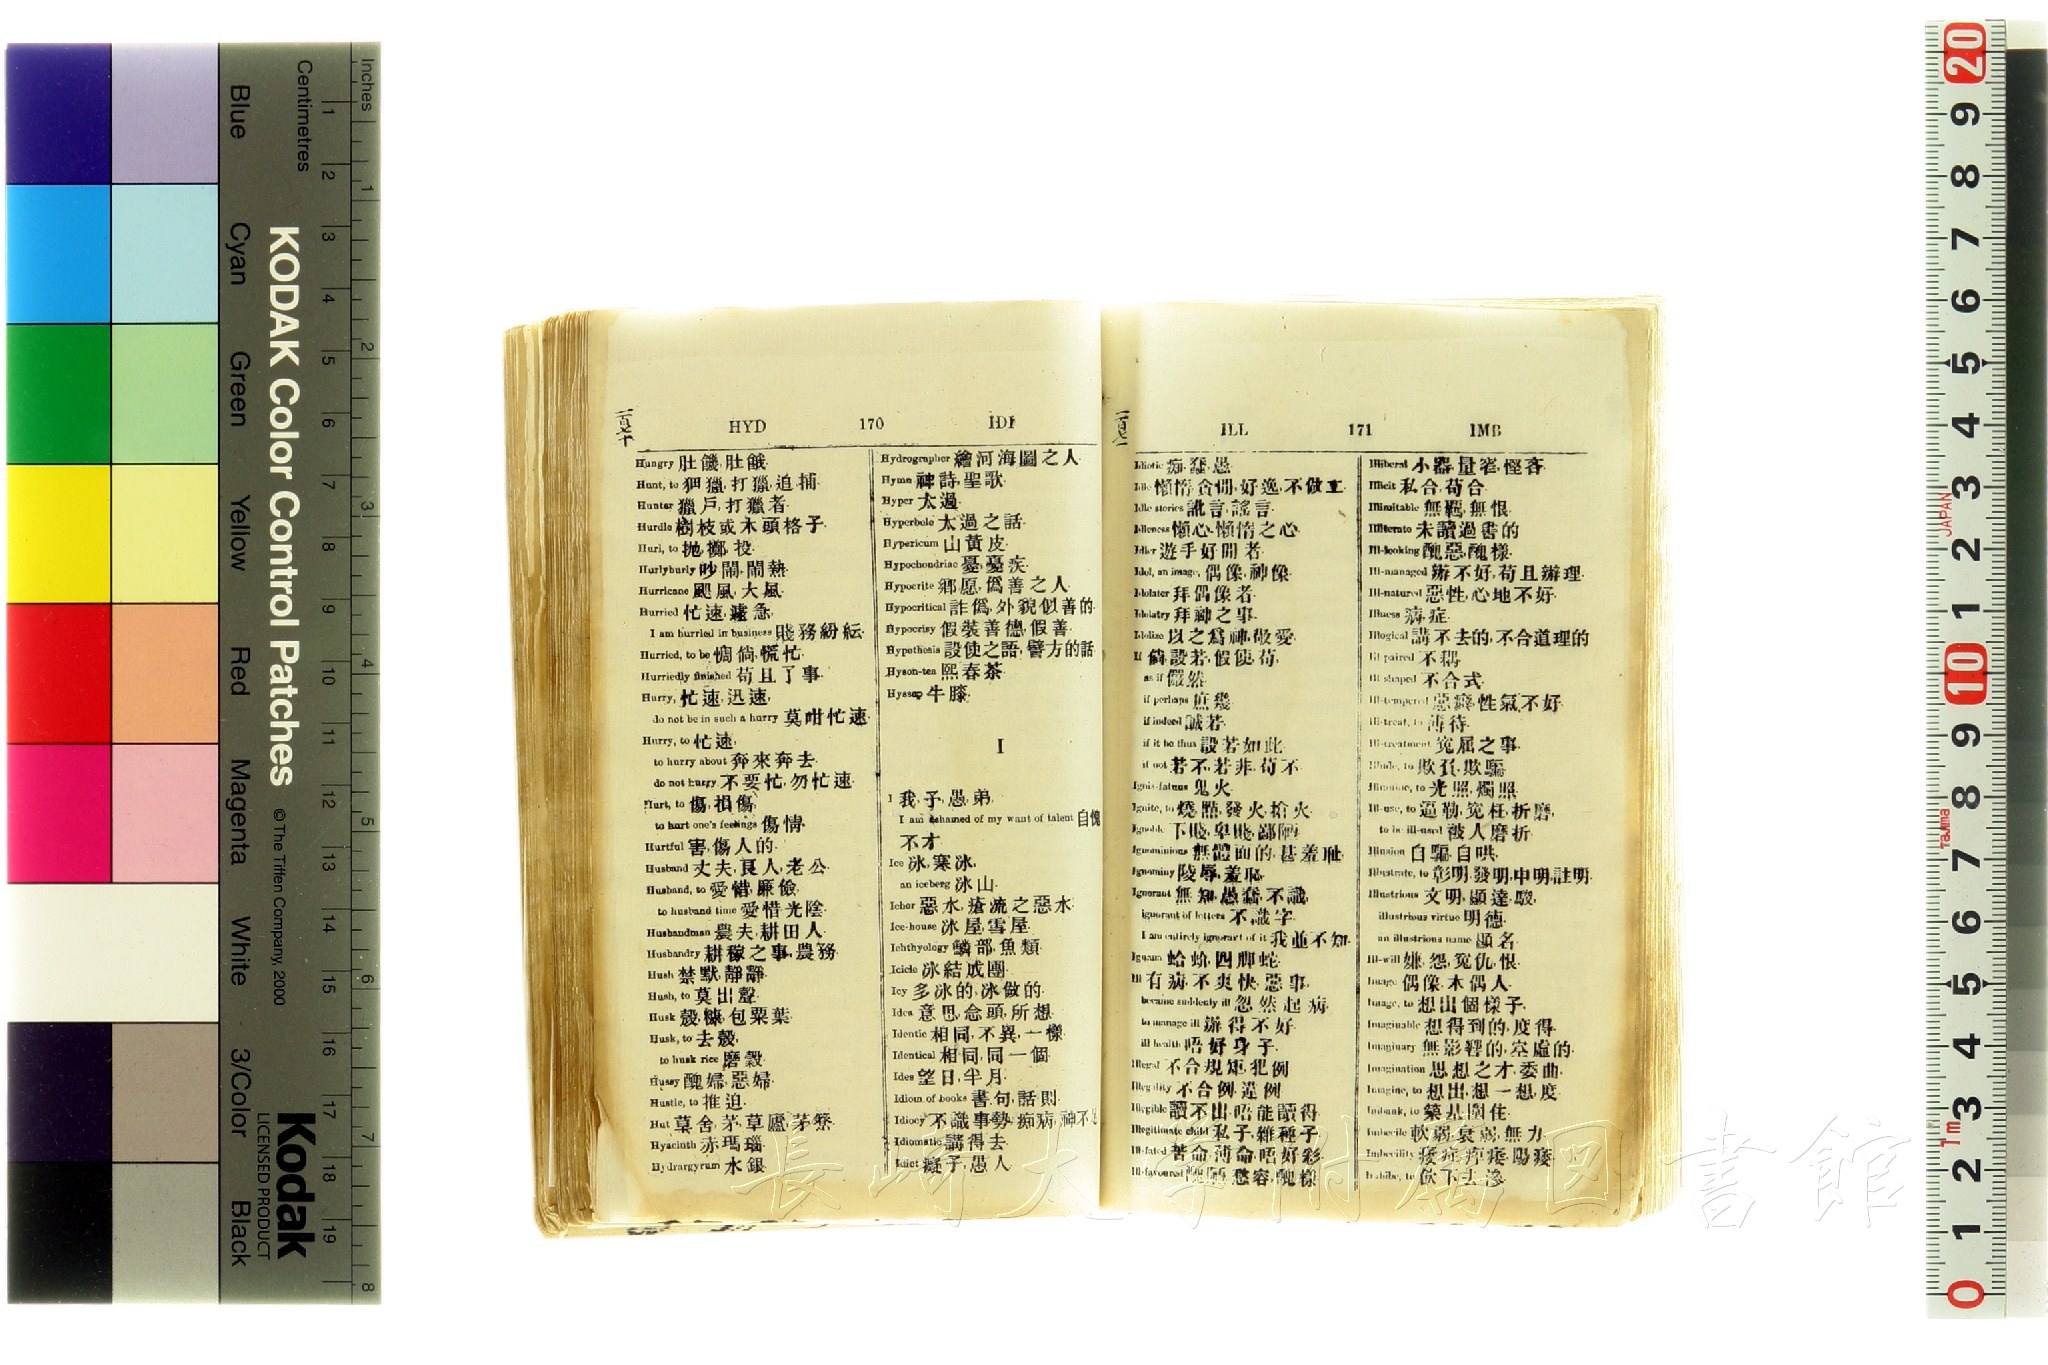 Inches
Centimetres
KODAK Color Control Patches
© The Tiffen Company, 2000
Kodak
LICENSED PRODUCT
Blue
Cyan
Green
Yellow
Red
Magenta
White
3/Color
Black
一百七十
HYD 170 IDI
Hungry 肚饑,肚餓.
Hunt, to 狎獵,打獵,追捕.
Hunter 獵戶,打獵者.
Hurdle 樹枝或木頭格子.
Hurl, to 拋,擲,投.
Hurlyburly 吵鬧,鬧熱.
Hurricane 颶風,大風.
Hurried 忙速,遽急.
I am hurried in business 賤務紛紜.
Hurried, to be 惝倘,慌忙.
Hurriedly finished 苟且了事.
Hurry, 忙速,迅速,
do not be in such a hurry 莫咁忙速.
Hurry, to 忙速,
to hurry about 奔來奔去.
do not hurry 不要忙,勿忙速.
Hurt, to 傷,損傷,
to hurt one's feelings 傷情.
Hurtful 害,傷人的.
Husband 丈夫,良人,老公.
Husband, to 愛惜,廉儉,
to husband time 愛惜光陰.
Husbandman 農夫,耕田人.
Husbandry 耕稼之事,農務.
Hush 禁默,靜靜.
Hush, to 莫出聲.
Husk 殼,糠,包粟葉.
Husk, to 去殼,
to husk rice 磨穀.
Hussy 醜婦,惡婦.
Hustle, to 推迫.
Hut 草舍,茅,草廬,茅寮.
Hyacinth 赤瑪瑙.
Hydrargyrum 水銀.
Hydrographer 繪河海圖之人.
Hymn 神詩,聖歌.
Hyper 太過.
Hyperbole 太過之話.
Hypericum 山黃皮.
Hypochondriac 憂,憂疾.
Hypocrite 鄉愿,僞善之人.
Hypocritical 詐僞,外貌似善的.
Hypocrisy 假裝善德,假善.
Hypothesis 設使之語,譬方的話.
Hyson-tea 熙春茶.
Hyssop 牛膝.
I
I 我,予,愚,弟.
I am ashamed of my want of talent 自愧
不才.
Ice 冰,寒冰,
an iceberg 冰山.
Ichor 惡水,瘡流之惡水.
Ice-house 冰屋,雪屋.
Ichthyology 鱗部,魚類.
Icicle 冰結成團.
Icy 多冰的,冰做的.
Idea 意思,念頭,所想.
Identic 相同,不異,一樣.
Identical 相同,同一個.
Ides 望日,半月.
Idiom of books 書句,話則.
Idiocy 不識事勢,痴病,神不足
Idiomatic 講得去.
Idiot 癡子,愚人.
ILL 171 IMB
Idiotic 痴,蠢,愚.
Idle 懶惰,貪閒,好逸,不做工.
Idle stories 訛言,謠言.
Idleness 懶心,懶惰之心.
Idler 遊手好閒者.
Idol, an image, 偶像,神像.
Idolater 拜偶像者.
Idolatry 拜神之事.
Idolize 以之爲神,敬愛.
If 倘,設若,假使,苟,
as if 儼然.
if perhaps 庶幾.
if indeed 誠若.
if it be thus 設若如此.
if not 若不,若非,苟不.
Ignis-fatuus 鬼火.
Ignite, to 燒,點,發火,拾火.
Ignoble 下賤,卑賤,鄙陋.
Ignominious 無體面的,甚羞耻.
Ignominy 陵辱,羞耻.
Ignorant 無知,愚蠢,不識,
ignorant of letters 不識字.
I am entirely ignorant of it 我並不知.
Iguana 蛤蚧,四脚蛇.
Ill 有病,不爽快,惡事.
became suddenly ill 忽然起病.
to manage ill 辦得不好.
ill health 唔好身子.
Illegal 不合規矩,犯例.
Illegality 不合例,違例.
Illegible 讀不出,唔能讀得.
Illegitimate child 私子,雜種子.
Ill-fated 苦命,薄命,唔好彩.
Ill-favoured 愁容,醜樣.
Illiberal 小器,量窄,慳吝.
Illicit 私合,苟合.
Illimitable 無羈,無限.
Illiterate 未讀過書的.
Ill-looking 醜惡,醜樣.
Ill-managed 辦不好,苟且辦理.
Ill-natured 惡性,心地不好.
Illness 病,症.
Illogical 講不去的,不合道理的.
Ill paired 不耦.
Ill shaped 不合式.
Ill-tempered 惡癖,性氣不好.
Ill-treat, to 薄待.
Ill-treatment 冤屈之事.
Illude, to 欺,欺騙.
Illumine, to 光照,燭照.
Ill-use, to 逼勒,冤枉,折磨,
to be ill-used 被人磨折.
Illusion 自騙,自哄.
Illustrate, to 彰明,發明,申明,註明.
Illustrious 文明,顯達,駿,
illustrious virtue 明德.
an illustrious name 顯名.
Ill-will 嫌,怨,冤仇,恨.
Image 偶像,木偶人.
Image, to 想出個樣子.
Imaginable 想得到的,度得.
Imaginary 無影響的,空虛的.
Imagination 思想之才,委曲.
Imagine, to 想出,想一想,度.
Imbank, to 築基圍住.
Imbecile 軟弱,衰弱,無力.
Imbecility 痿症,痺痿,陽痿.
Imbibe, to 飲下去,滲.
長崎大学附属図書館
JAPAN
Tajima
1m